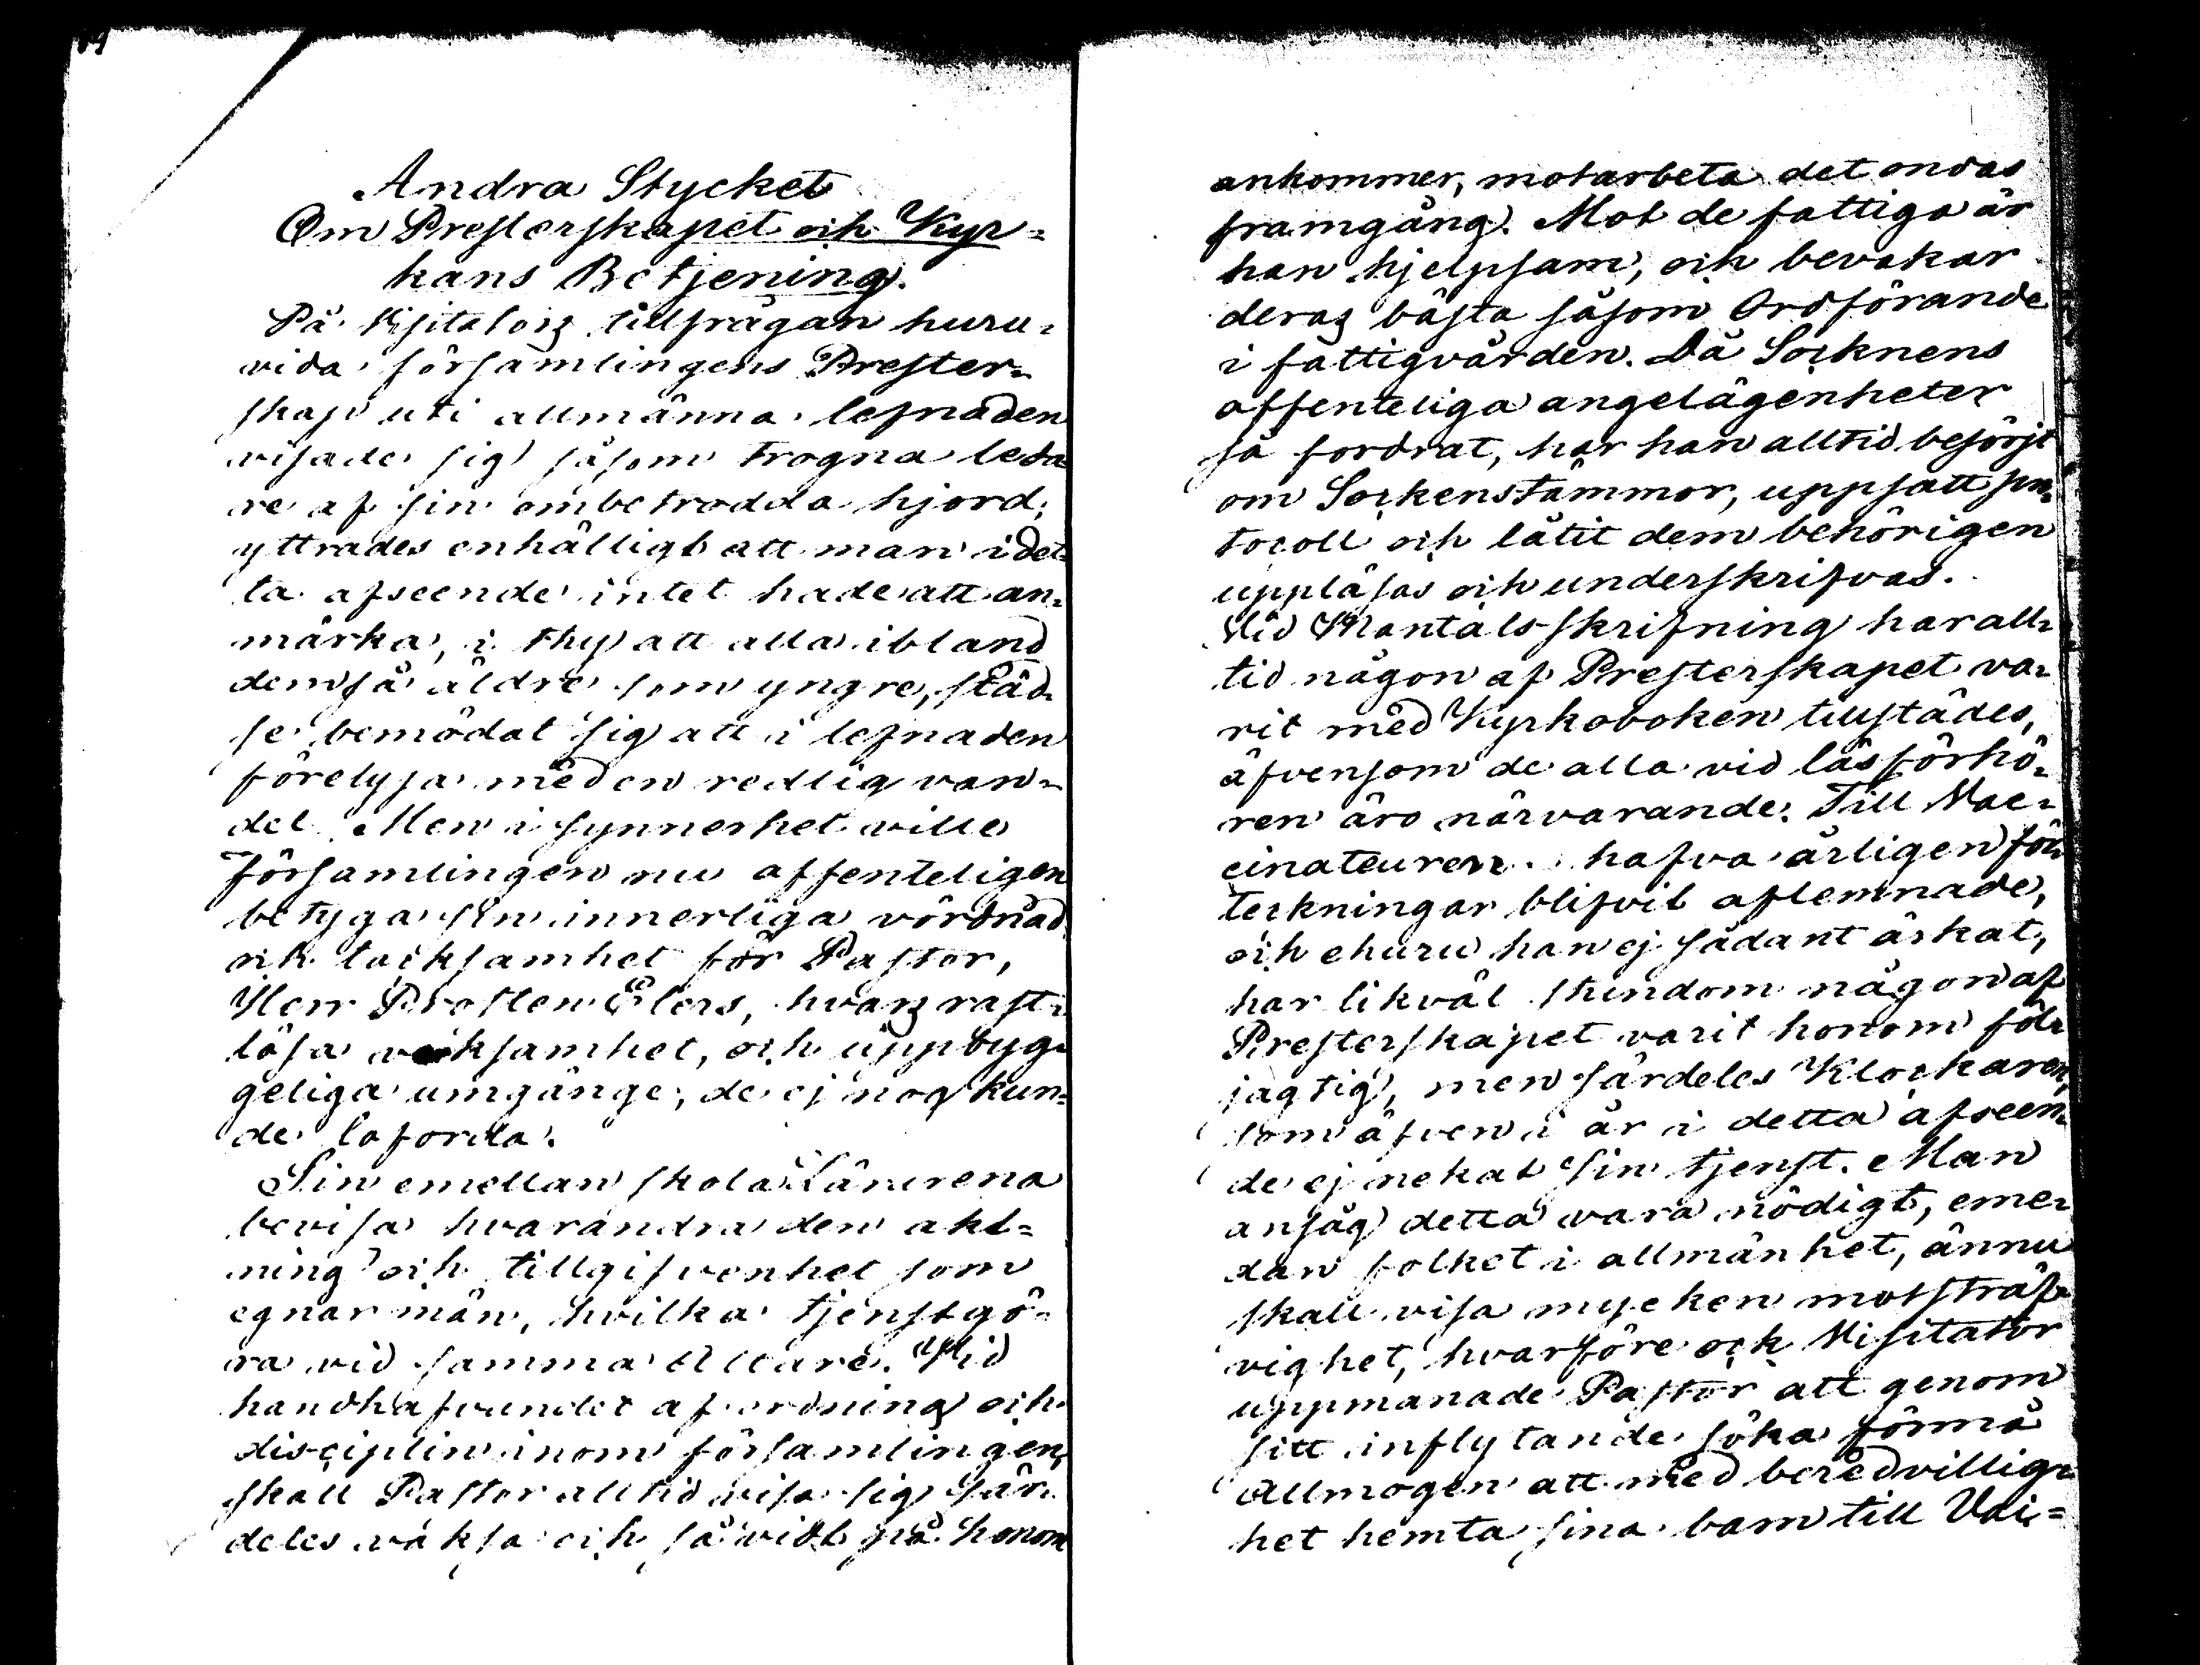 Andra Stycket
Om Presterskapet och Kyr=
kans Betjening.
På Visitators tillfrågan huru=
vida församlingens Prester=
skap uti allmänna lefnaden
visade sig såsom trogna leda
re af sin ombetrodda hjord,
yttrades enhälligt att man i det=
ta afseende intet hade att an=
märka, i thy att alla ibland
dem så äldre som yngre, städ=
se bemödat sig att i lefnaden
förelysa med en redlig van=
del. Men i synnerhet ville
församlingen nu offenteligen
betyga sin innerliga vördnad
och tacksamhet för Pastor,
Herr Prosten Elers, hvars rast=
lösa verksamhet, och uppbyg=
geliga umgänge, de ej nog kun=
de loforda.
Sin emellan skola Lärarena
bevisa hvarandra den akt=
ning och tillgifvenhet som
egnar män, hvilka tjenstgö=
ra vid samma Altare. Vid
handhafvandet af ordning och
disciplin inom församlingen,
skall Pastor alltid visa sig sär=
deles vaksa och så vidt på honom
ankommer, motarbeta det ondas
framgång. Mot de fattiga är
han hjelpsam, och bevakar
deras bästa såsom Ordförande
i fattigvården. Då Socknens
offenteliga angelägenheter
så fordrat, har han alltid besörjt
om Sockenstämmor, uppsatt pro=
tocoll och låtit dem behörigen
uppläsas och underskrifvas.
Vid Mantals-skrifning har all=
tid någon af Presterskapet va=
rit med Kyrkoboken tillstädes,
äfvensom de alla vid läsförhö=
ren äro närvarande. Till Vac=
cinateuren hafva årligen för=
teckningar blifvit aflemnade,
och ehuru han ej sådant äskat,
har likväl stundom någon af
Presterskapet varit honom föl=
jagtig, men särdeles Klockaren,
som äfven i år i detta afseen=
de ej nekat sin tjenst. Man
ansåg detta vara nödigt, eme=
dan folket i allmänhet, ännu
skall visa mycken motsträf=
vighet, hvarföre ock Visitator
uppmanade Pastor att genom
sitt inflytande söka förmå
Allmogen att med beredvillig=
het hemta sina barn till Vac=